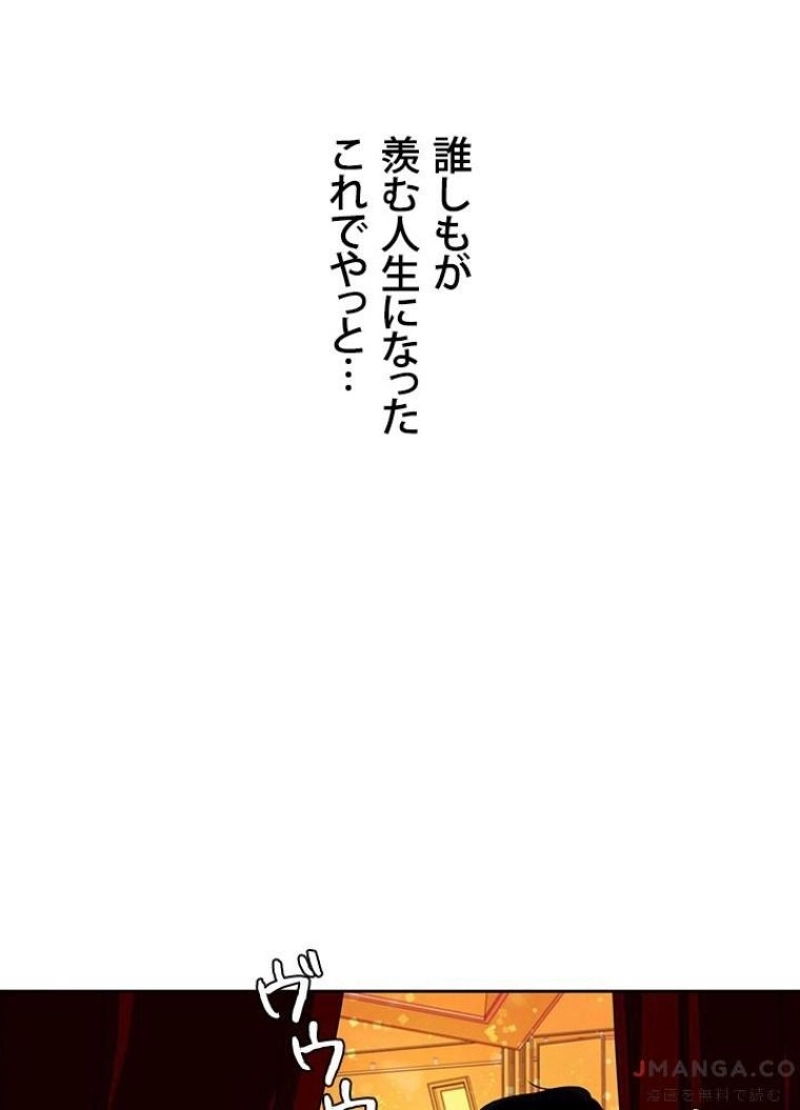 誰しもが
羨む人生になった
これでやっと…
ヴウウ
JMANGA.CO
漫画を無料で読む